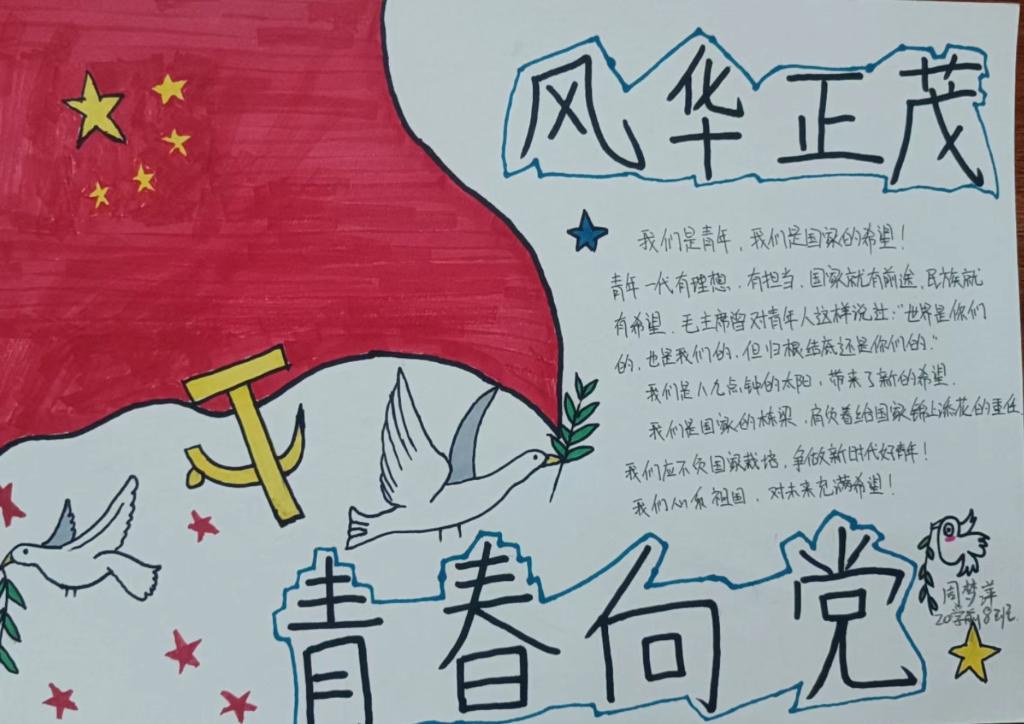 风华正茂
我们是青年，我们是国家的希望！
青年一代有理想、有担当，国家就有前途，民族就
有希望。毛主席曾对青年人这样说过："世界是你们
的，也是我们的，但归根结底还是你们的。"
我们是八九点钟的太阳，带来了新的希望。
我们是国家的栋梁，肩负着给国家锦上添花的重任
我们应不负国家栽培，争做新时代好青年！
我们心系祖国，对未来充满希望！
青春向党
周梦萍
20学前8班